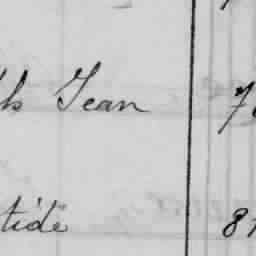 ls Jean 7
tide 8